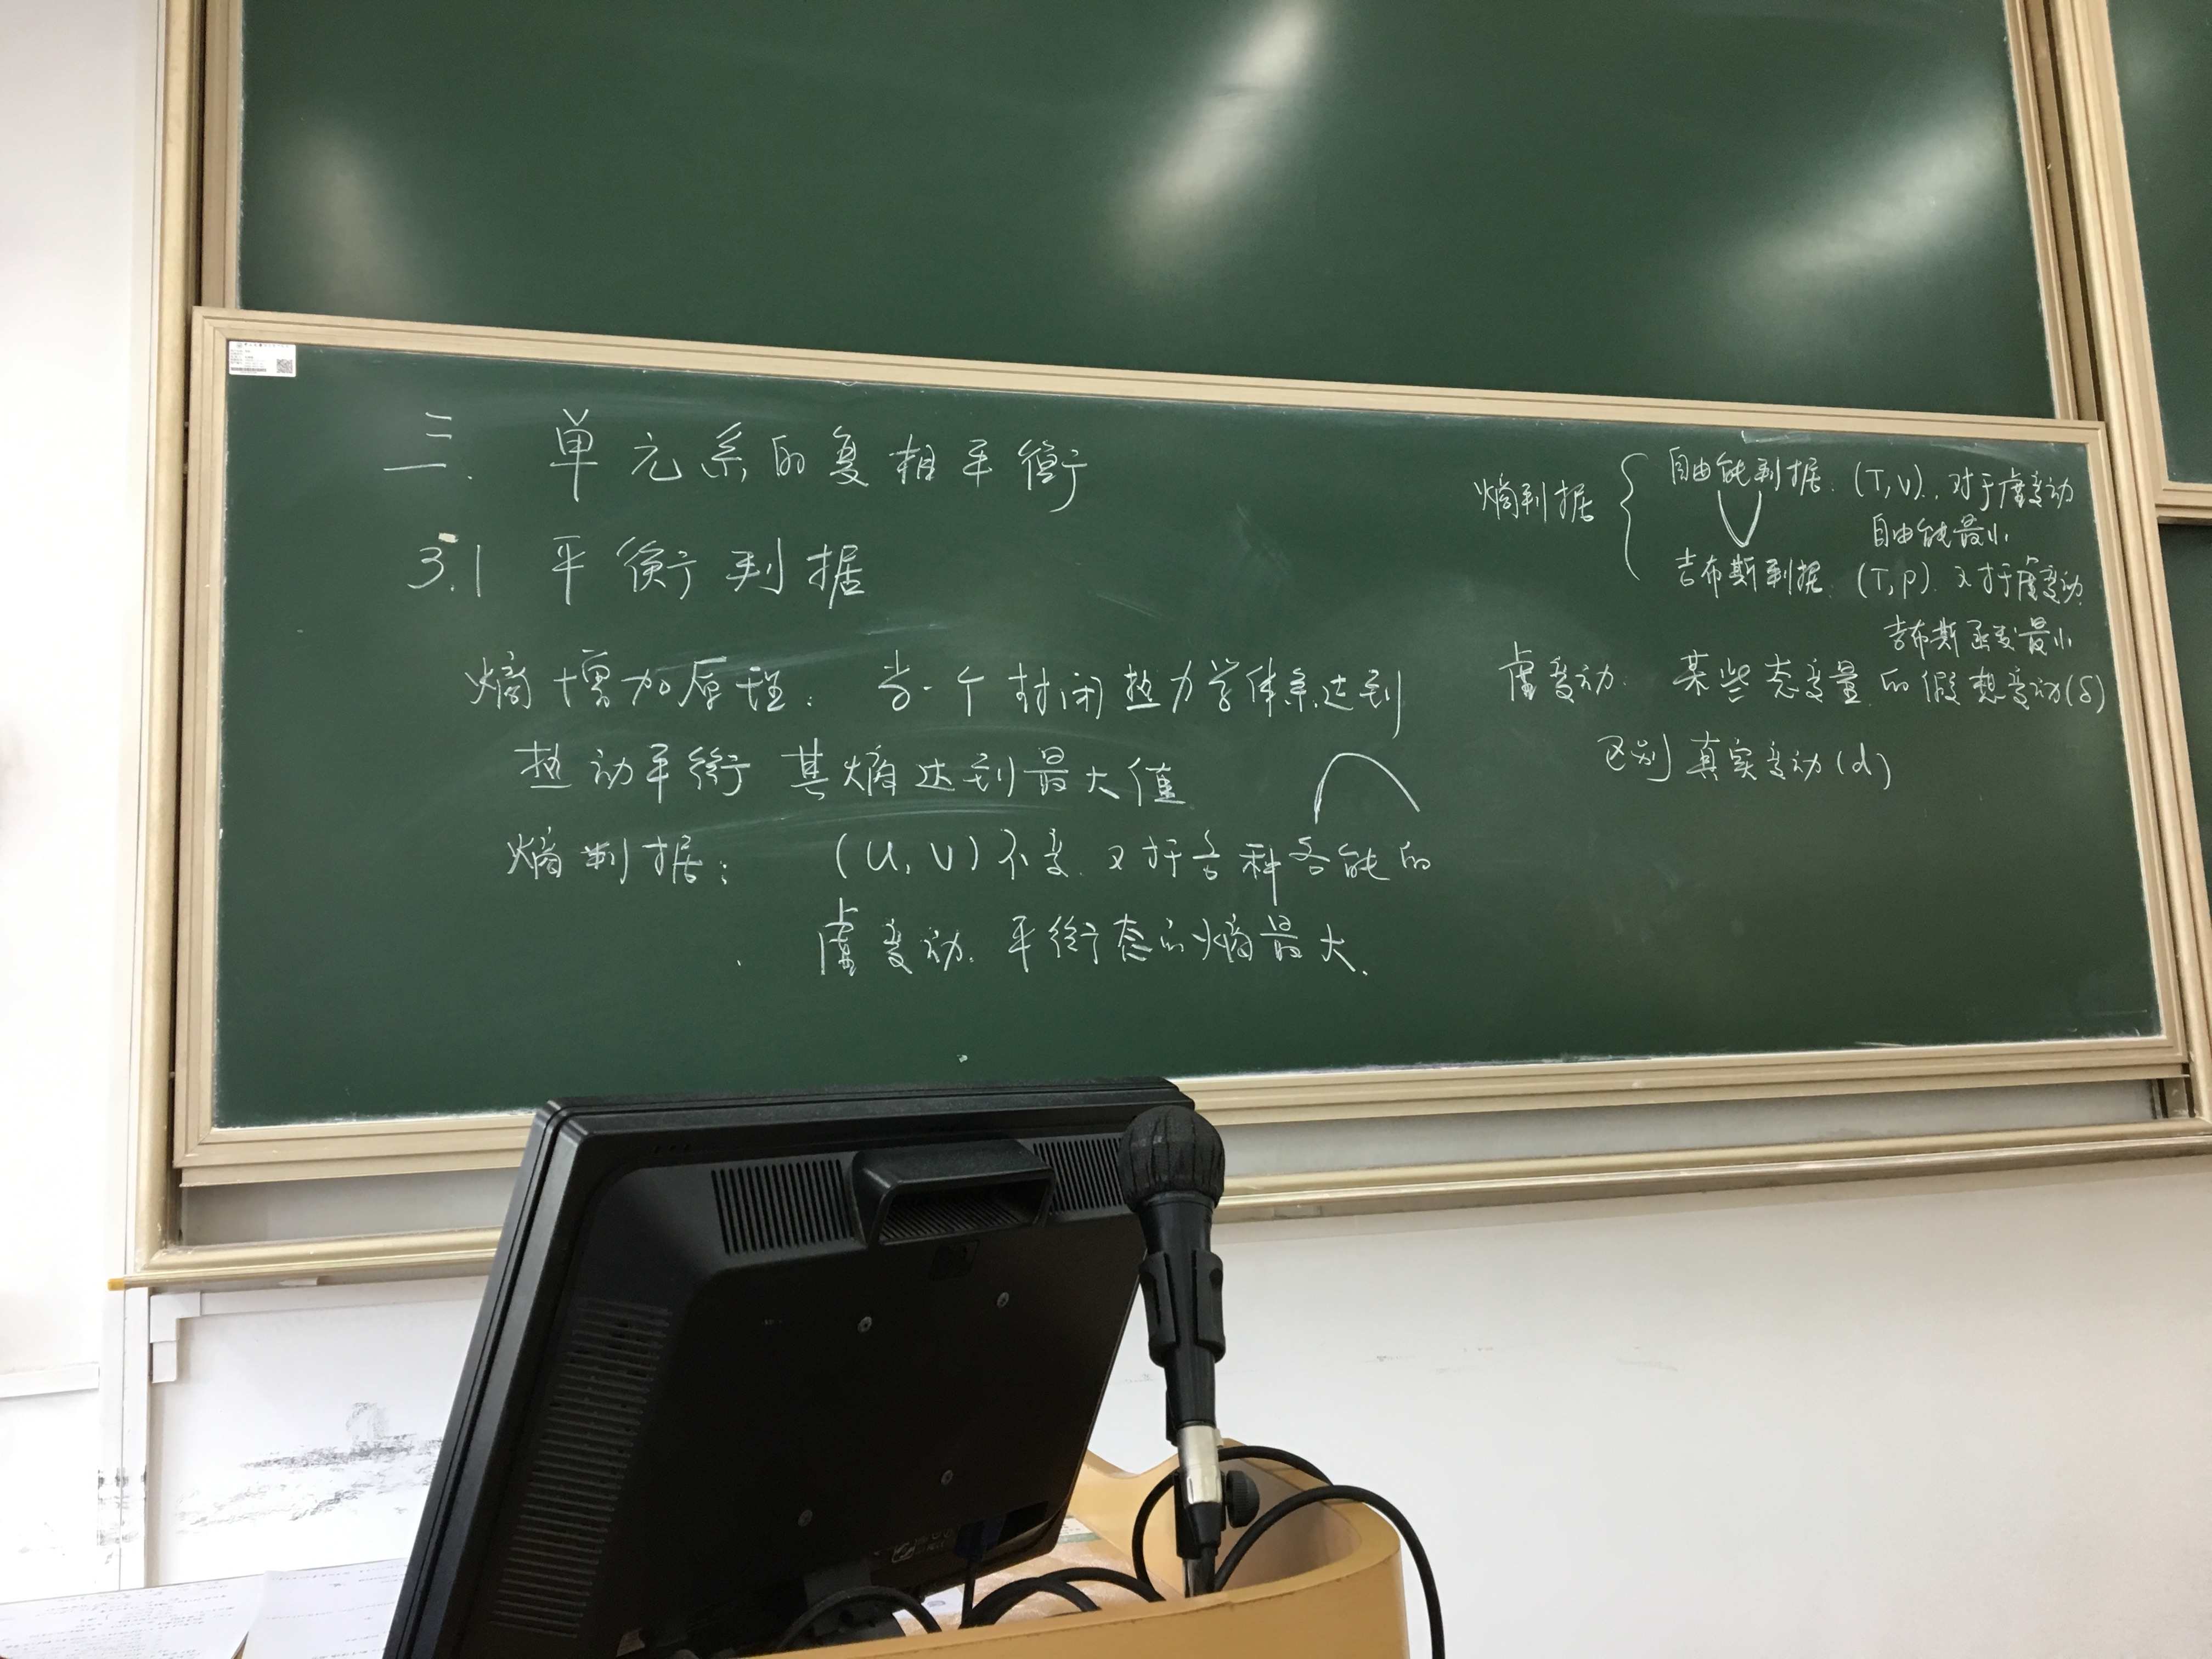 三. 单元系的复相平衡
3.1 平衡判据
熵增加原理: 当一个封闭热力学体系达到
热动平衡 其熵达到最大值
熵判据: (U, V)不变. 对于各种各能的
虚变动. 平衡态的熵最大.
熵判据
自由能判据. (T,V). 对于虚变动
自由能最小
吉布斯判据. (T,P). 对于虚变动
吉布斯函数最小
虚变动: 某些态变量的假想变动(δ)
区别 真实变动(d)